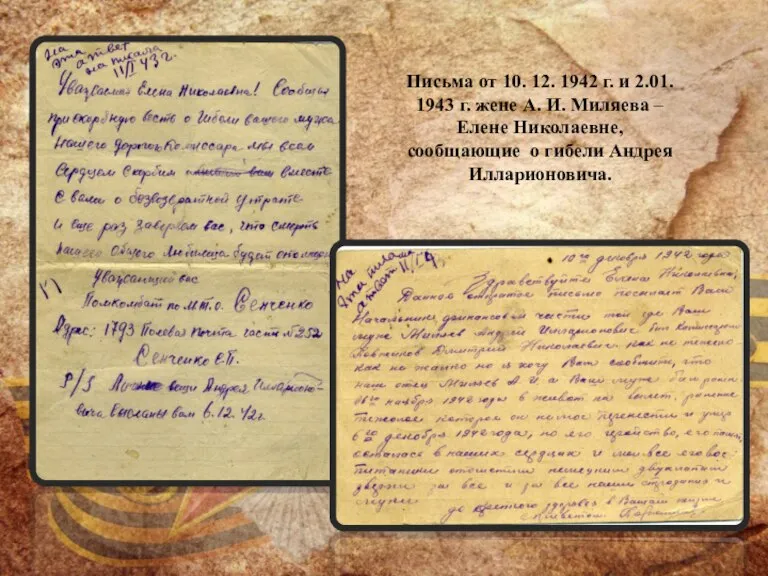 Письма от 10. 12. 1942 г. и 2.01.
1943 г. жене А. И. Миляева –
Елене Николаевне,
сообщающие о гибели Андрея
Илларионовича.
на
эти ответ
написала
11/I 43 г.
Уважаемая Елена Николаевна! Сообщая
прискорбную весть о гибели вашего мужа
нашего дорогого комиссара мы всем
сердцем скорбим вместе
с вами о безвозвратной утрате
и еще раз заверяем вас, что смерть
нашего общего любимца будет отомщена
Уважающий вас
Сенченко
Адрес: 1793 Полевая почта часть № 252
Сенченко
P/S вещи Андрея Илларионо-
вича высланы вам 6.12.42 г.
на
эти письма
ответ 11/I
10го декабря 1942 года
Здравствуйте Елена Николаевна,
Данное письмо посылает Вам
Начальник финансовой части той где Ваш
муж Миляев Андрей Илларионович был комиссаром
Дмитрий Николаевич, как не тяжело
как на жалко но я хочу Вам сообщить, что
наш отец Миляев А. И. а Ваш муж был ранен
ноября 1942 года в живот на вылет. ранение
тяжелое которое он не мог перенести и умер
6го декабря 1942 года, но его геройство, его
осталась в наших сердцах и мы все его вос-
питанники отомстим
за все и за все наши страдания и
муки
до в Вашей жизни
с приветом